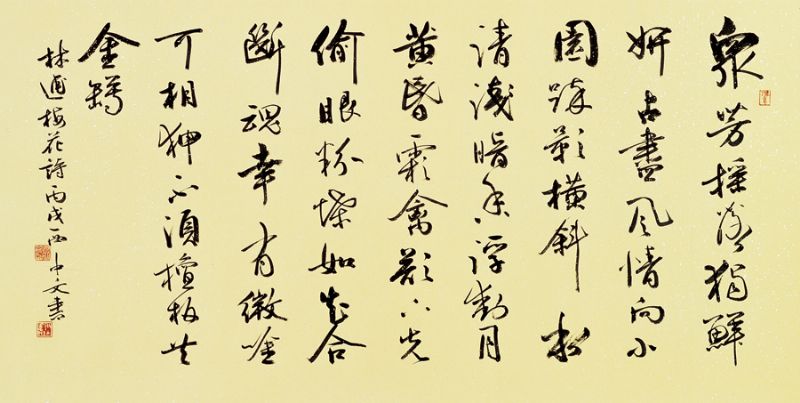 眾芳摇落独鮮
妍占盡風情向小
園疎影橫斜水
清淺暗香浮動月
黄昏霜禽欲下先
偷眼粉蝶如知合
斷魂幸有微吟
可相狎不須檀板共
金罇
林逋梅花詩丙戌西中文書